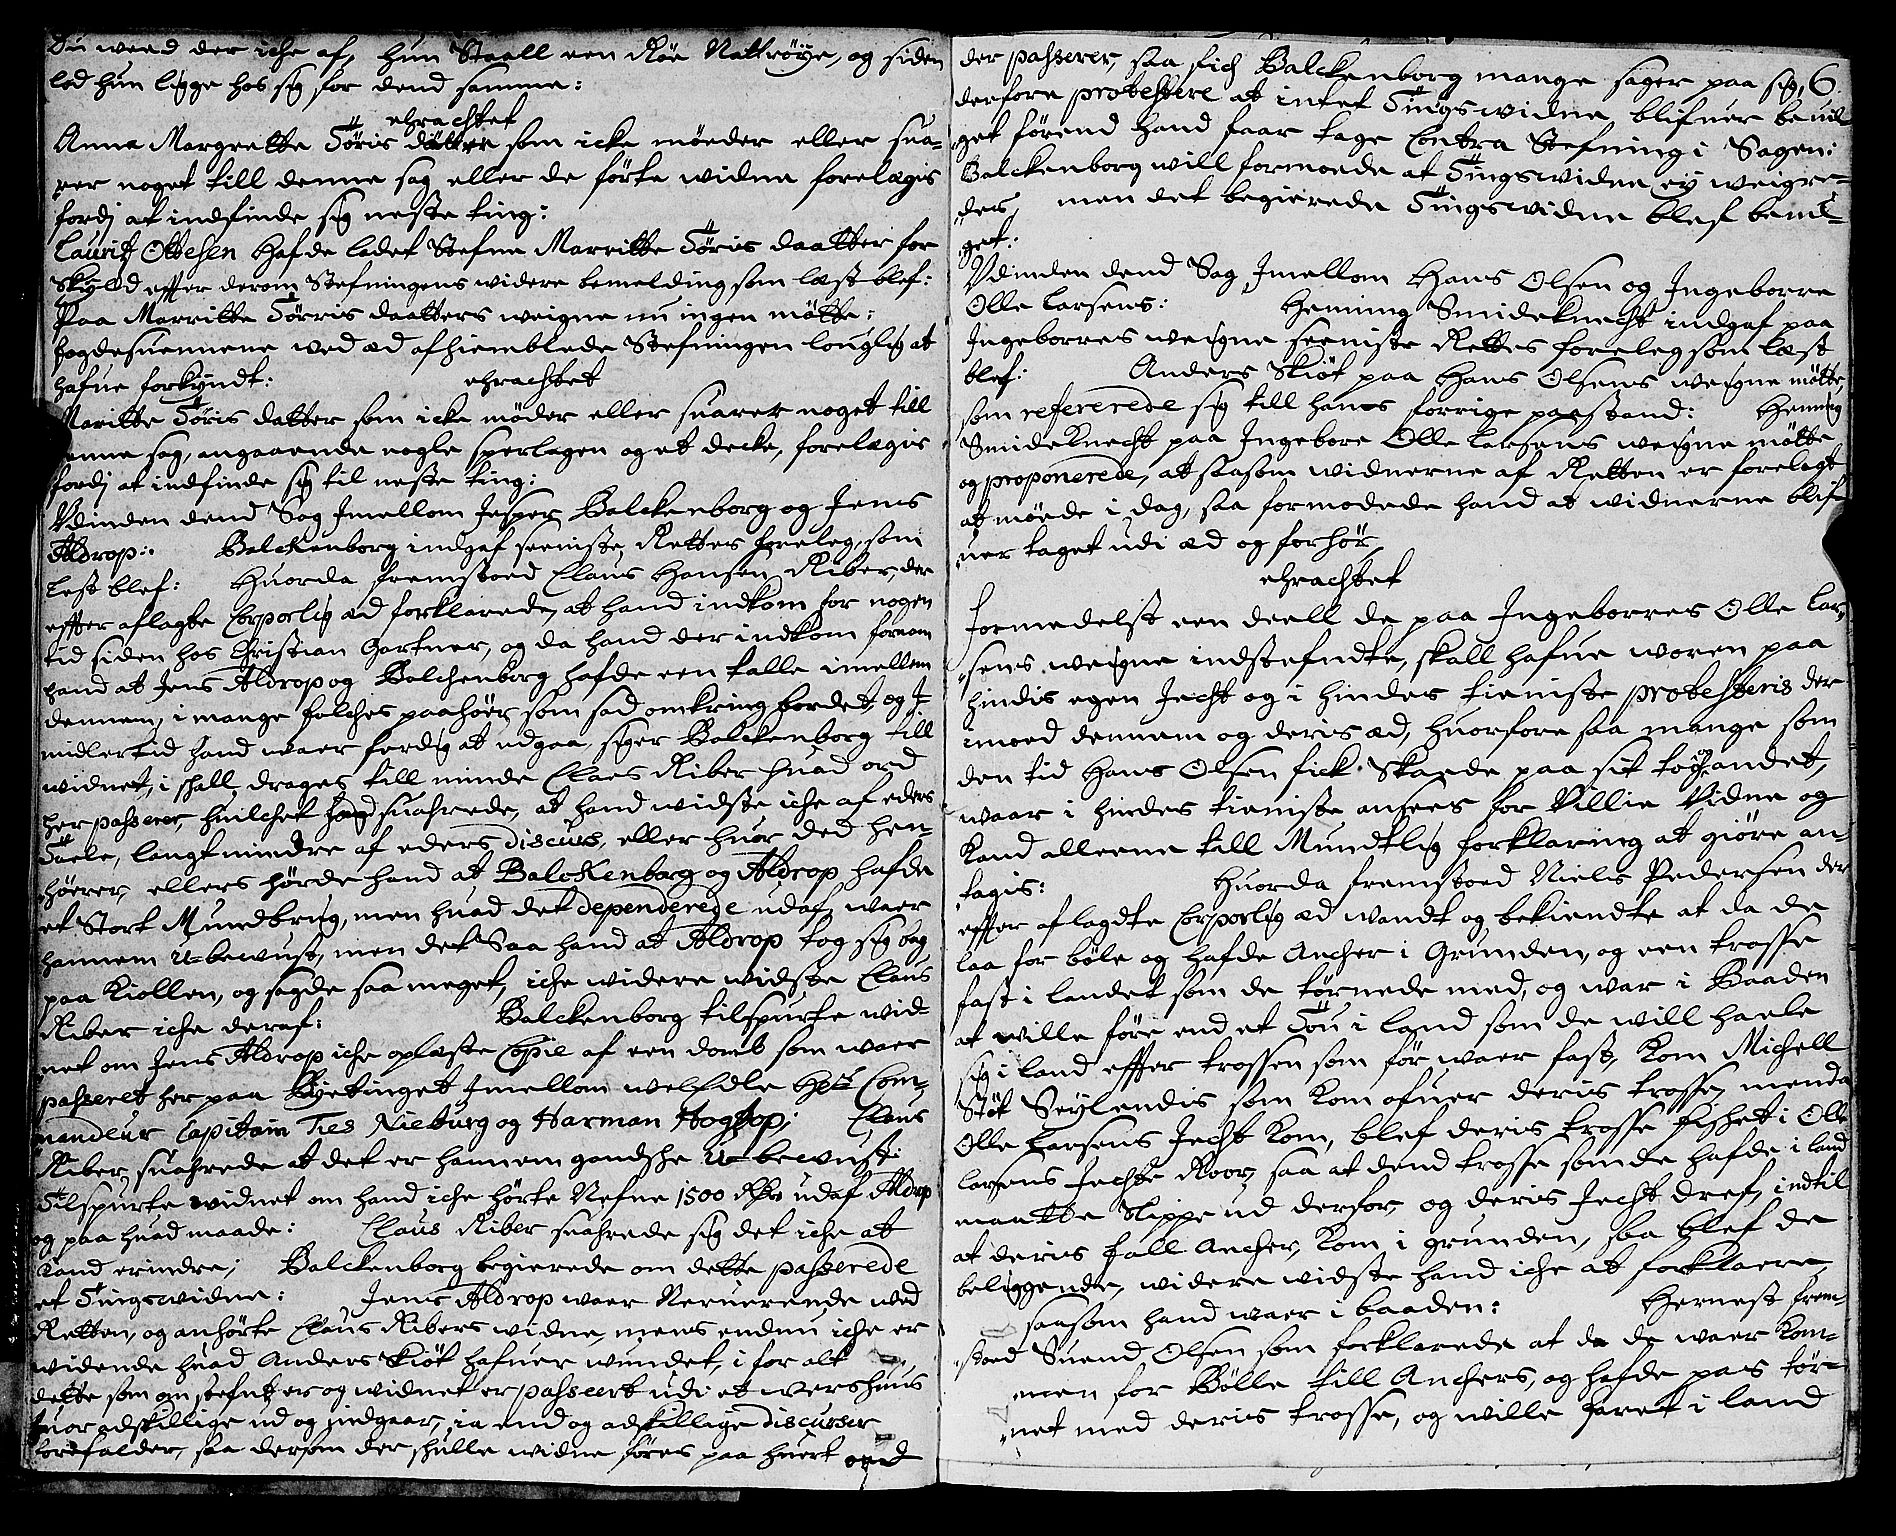 Du weed der iche af, hun Staall een Röe Nattröye, og siden
lod hun ligge hos sig for dend samme:
ehrachtet
Anna Margrette Törisdatter som icke möeder eller sua-
rer noget till denne sag eller de förte widne forelægis
fordj at indfinde sig neste ting:
Lauritz Ottesen hafde ladet Stefne Marritte Törisdaatter for
Skyld effter derom Stefningens widere bemelding som læst blef:
Paa Marritte Törrisdaatters weigne nu ingen mötte:
fogdesuennene wed æd afhiemblede Stefningen louglig at
hafue forkyndt: ehrachtet
Maritte Törisdatter som icke möder eller suarer noget till
denne sag, angaaende nogle sperlagen og et decke, forelægis
fordj at indfinde sig til neste ting:
Udinden dend Sag Jmellom Jesper Balckenborg og Jens
Aldrop: Balckenborg indgaf seeniste Rettes foreleg, som
lest blef: Huorda fremstoed Claus Hansen Riber, der
effter aflagte Corporlig æd forklarede, at hand indkom for nogen
tid siden hos Christian Gartner, og da hand der indkom fornam
hand at Jens Aldrop og Balchenborg hafde een talle imellem
dennem, i mange folches paahöer som sad omkring bordet, og J
midlertid hand waer ferdig at udgaa, siger Balckenborg till
widnet, i shall drages till minde Claes Riber huad ord
her passerer, huilchet hand suahrede, at hand widste iche af eders
Taele, langt mindre af eders discurs, eller huor ded hen-
höerer, ellers hörde hand at Balckenborg og Aldrop hafde
et Stort Mundbrug, men huad det dependerede udaf, waer
hannem u-bewust, men det Saa hand at Aldrop tog sig bag
paa Kiollen, og sagde saa meget, iche widere widste Claus
Riber iche deraf: Balckenborg tilspurte wid-
net om Jens Aldrop iche oplæste Copie af een domb som waer
passeret her paa Byetinget Jmellom welEdle Hr Com-
mandeur Capitain Ties Nieburg og Harman Hogstop; Claus
Riber suahrede at det er hannem gandshe u-bewust:
Tilspurte widnet om hand iche hörte Nefne 1500 Rdr udaf Aldrop
og paa huad maade: Claus Riber suahrede sig det iche at
kand erindre; Balckenborg begierede om dette passerede
et Tingswidne: Jens Aldrop waer Neruerende ved
Retten, og anhörte Claus Ribers widne, mens endnu iche er
widende huad Anders Skiöt hafuer wundet, i for alt
dette som om stefnt er og widnet er passeert udi et wershuus
huor adskillige ud og indgaar, ia end og adskillige discurser
forefalder, saa dersom der shulle widne föres paa huert ord
der passerer, saa fich Balckenborg mange sager paa sig, 6.
derfore protestere at intet Tingswidne, blifuer beuil-
get förend hand faar tage Contra Stefning i Sagen:
Balckenborg will formoede at Tingswidne ey weigre-
des, men det begierede Tingswidne blef beuil-
get:
Udinden dend Sag Jmellom Hans Olsen og Ingeborre
Olle Larsens: Henning Smideknecht indgaf paa
Ingeborres weigne seeniste Rettes foreleg som læst
blef: Anders Skiöt paa Hans Olsens weigne mötte,
som refererede sig till hans forrige paastand: Henning
Smideknecht paa Ingebore Olle Larsens weigne mötte
og proponerede, at saasom widnerne af Retten er forelagt
at möede i dag, saa formodede hand at widnerne blif-
uer taget udi æd og forhör,
ehrachtet
Formedelst een deell de paa Ingeborres Olle Lar-
sens weigne indstefndte, skall hafue woren paa
hindis egen Jecht og i hindes tieniste protesteris der
imoed dennem og deris æd, huorfore saa mange som
den tid Hans Olsen fick Skaade paa sit tog andet,
waar i hindes tieniste ansees for Villie Vidne og
Kand alleene till Mundtlig forklaring at giöre an-
tagis: Huorda fremstoed Niels Pedersen der
effter aflagdte Corporlig æd wandt og bekiendte at da de
laa for böle og hafde Ancher i Grunden, og een trosse
fast i landet som de törnede med, og war i Baaden
at wille före end et Tou i land som de will haele
sig i land effter trossen som för waer fast, Kom Michell
Stöt Seylendis som kom ofuer deris trosse, menda
Olle Larsens Jecht kom, blef deris trosse fishet i Olle
Larsens Jechte Roor, saa at dend trosse som de hafde i land
maatte Slippe ud derfor, og deris Jecht dref, indtil
at deris fall Ancher, kom i grunden, saa blef de
beliggende, widere widste hand iche at forklaere,
saasom hand waer i baaden: Hernest frem-
stoed Suend Olsen som forklarede at da de waer kom-
men for Bölle till Anchers, og hafde paa tör-
net med deris trosse, og wille faret i land